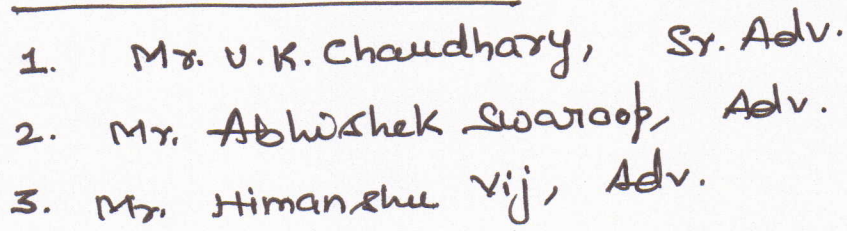 1. Mr. U.K. Chaudhary, Sr. Adv.
2. Mr. Abhishek Swaroop, Adv.
3. Mr. Himanshu Vij, Adv.